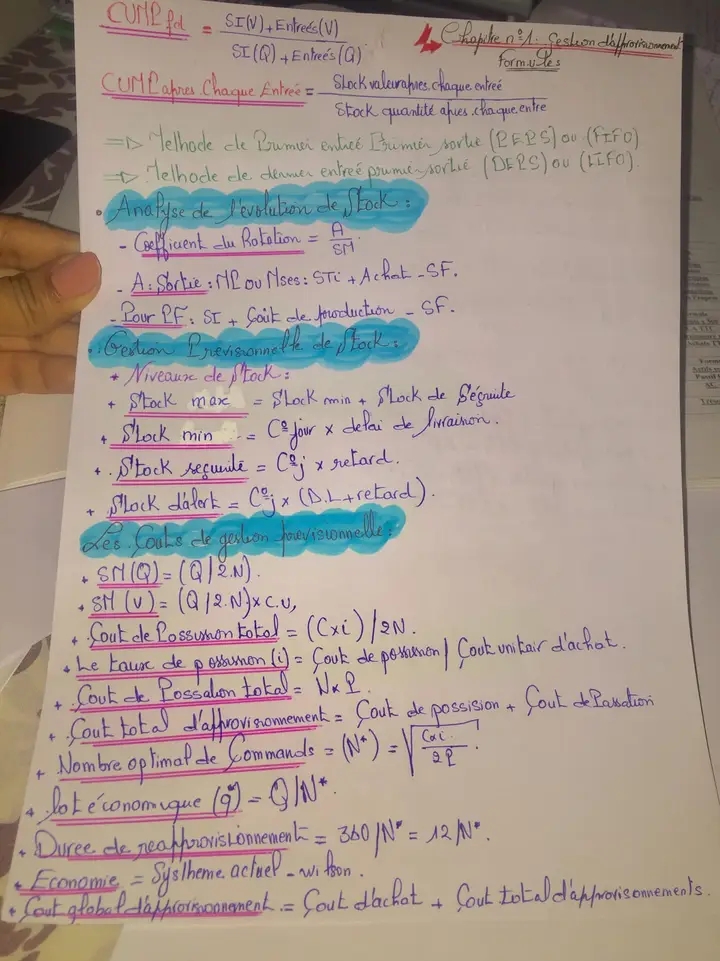 Chapitre n°1. Gestion d'approvisionnement
Formules
CUMP fd = SI(V)+Entreés(V) / SI(Q)+Entreés(Q)
CUMP apres. Chaque Entreé = Stock valeur apres. chaque entreé / Stock quantité apres. chaque entre
=> Methode de Prumier entreé Prumier sortie (P.E.P.S) ou (FIFO)
=> Methode de dernier entreé prumier sortie (DEPS) ou (LIFO).
• Analyse de l'évolution de Stock :
- Coefficient du Rotation = A / SM
- A : Sortie : MP ou Mses : STi + Achat - SF.
- Pour PF : SI + Coût de production - SF.
• Gestion Prévisionnelle de Stock :
* Niveaux de Stock :
+ Stock max = Stock min + Stock de Sécurite
+ Stock min = C° jour x delai de livraison.
+ Stock securité = C°j x retard.
+ Stock d'alert = C°j x (D.L+retard).
Les Couts de gestion previsionnelle :
+ SM(Q) = (Q/2.N).
+ SM(V) = (Q/2.N)x C.U,
+ Cout de Possession total = (Cxi)/2N.
+ Le taux de possession (i) = Cout de possession / Cout unitair d'achat.
+ Cout de Possation total = N x P.
+ Cout total d'approvisionnement = Cout de possision + Cout de Passation
+ Nombre optimal de Commands = (N*) = √ Cxi / 2P.
+ lot économique (q*) = Q/N*.
+ Duree de reapprovisionnement = 360/N* = 12/N*.
+ Economie = Systheme actuel - wilson.
+ Cout global d'approvisionnement = Cout d'achat + Cout total d'approvisonnements.